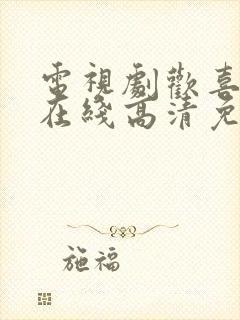 電視劇歡喜
在綫高清免
施福